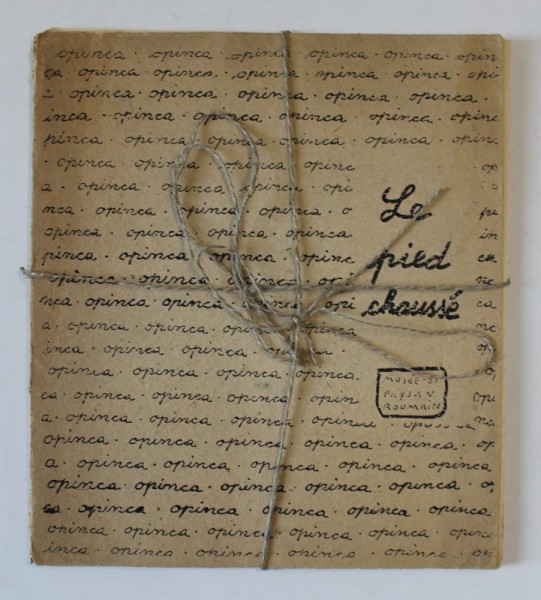 opinca · opinca · opinca · opinca · opinca · opin
ca · opinca · opinca · opinca · opinca · opinca · opi
a · opinca · opinca · opinca · opinca · opinca ·
inca · opinca · opinca · opinca · opinca · opinc
pinca · opinca · opinca · opinca · opinca · opinc
· opinca · opinca · opinca · opinc
a · opinca · opinca · opinca · opi
nca · opinca · opinca · opinca · o
Le
opinca · opinca · opinca · opinca
pinca · opinca · opinca · opinc
pied
opinca · opinca · opinca · opin
nca · opinca · opinca · opinca · opi
chaussé
a · opinca · opinca · opinca · opinca
inca · opinca · opinca · opinca
opinca · opinca · opinca · opinca
MUSÉE DU
PAYSAN
ROUMAIN
ca · opinca · opinca · opinca · opin
a · opinca · opinca · opinca · opinca
opinca · opinca · opinca · opinca · opinca · op
a · opinca · opinca · opinca · opinca · opinca
opinca · opinca · opinca · opinca · opinca · o
ca · opinca · opinca · opinca · opinca · opinca
opinca · opinca · opinca · opinca · opinca · opinc
inca · opinca · opinca · opinca · opinca · opinca